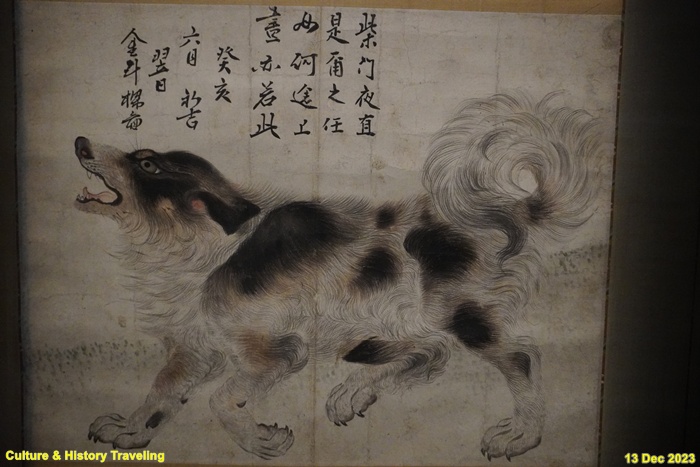 柴門夜直
是爾之任
如何途上
晝亦若此
癸亥
六月 初吉
翌日
金斗樑
Culture & History Traveling
13 Dec 2023